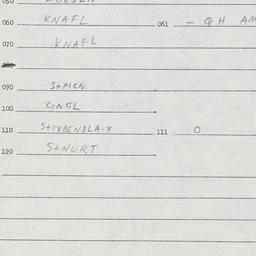 050
060 KNAFL 061 - QH AM
070 KNAFL
090 S+PICN
100 CINGL
110 S+IXBENDLA-X 111 O
120 S+NURT